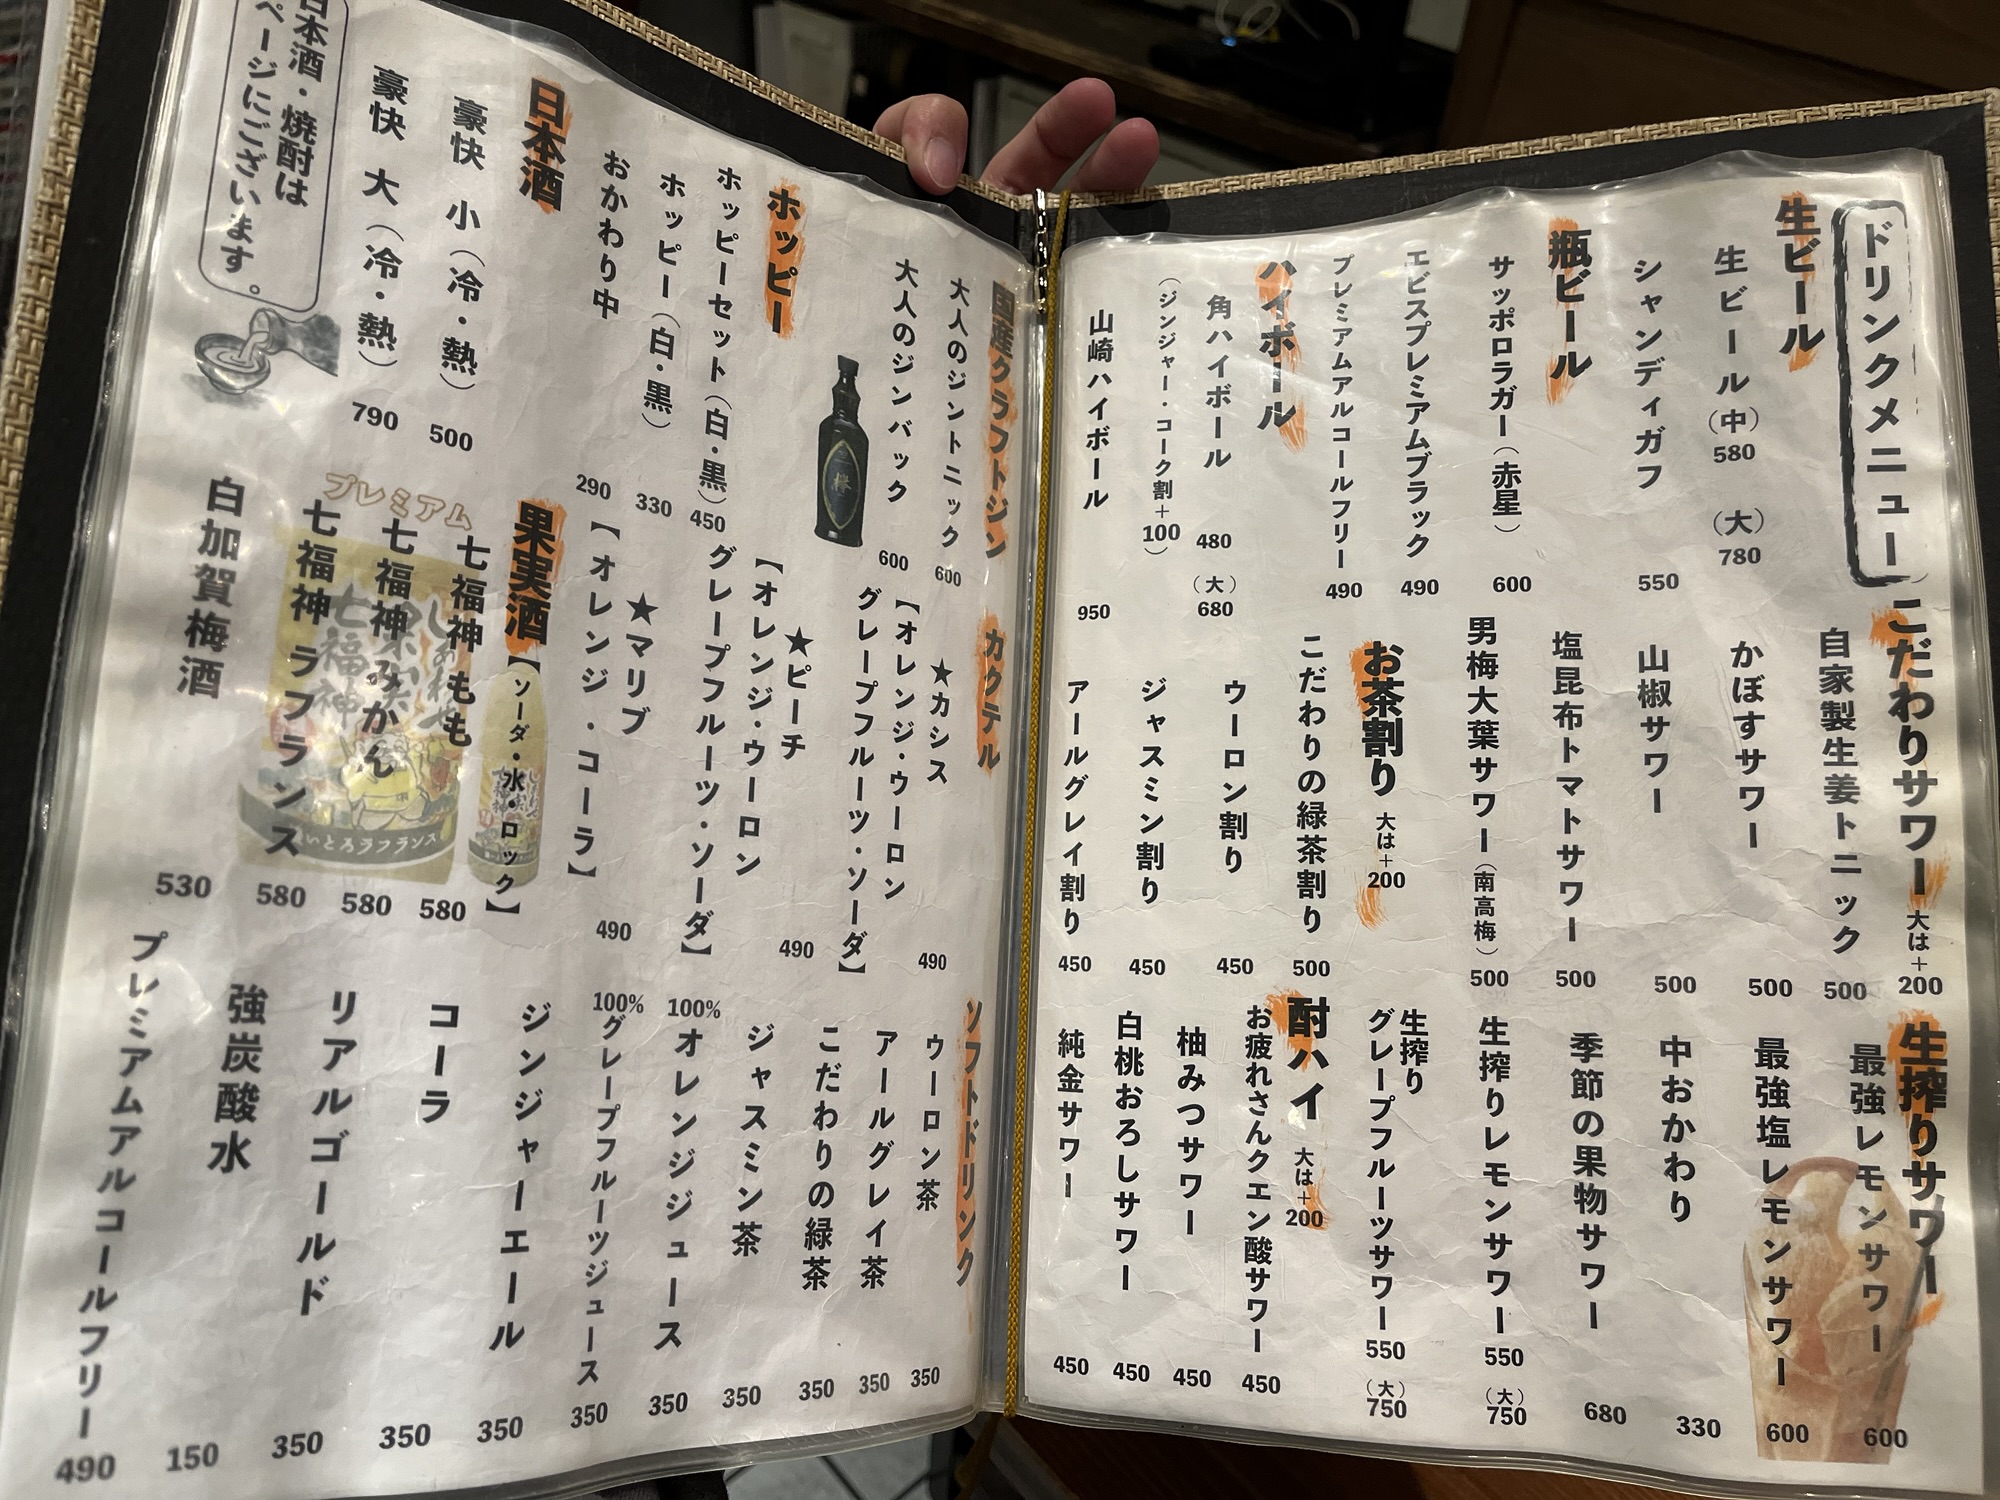 ドリンクメニュー
生ビール
生ビール(中) 580 (大) 780
シャンディガフ 550
瓶ビール
サッポロラガー(赤星) 600
エビスプレミアムブラック 490
プレミアムアルコールフリー 490
ハイボール
角ハイボール 480 (大) 680
(ジンジャー・コーク割+100)
山崎ハイボール 950
こだわりサワー 大は+200
自家製生姜トニック 500
かぼすサワー 500
山椒サワー 500
塩昆布トマトサワー 500
男梅大葉サワー(南高梅) 500
お茶割り 大は+200
こだわりの緑茶割り 500
ウーロン割り 450
ジャスミン割り 450
アールグレイ割り 450
生搾りサワー
最強レモンサワー 600
最強塩レモンサワー 600
中おかわり 330
季節の果物サワー 680
生搾りレモンサワー 550 (大) 750
生搾り
グレープフルーツサワー 550 (大) 750
酎ハイ 大は+200
お疲れさんクエン酸サワー 450
柚みつサワー 450
白桃おろしサワー 450
純金サワー 450
国産クラフトジン
大人のジントニック 600
大人のジンバック 600
ホッピー
ホッピーセット(白・黒) 450
ホッピー(白・黒) 330
おかわり中 290
日本酒
豪快 小(冷・熱) 500
豪快 大(冷・熱) 790
日本酒・焼酎は
ページにございます。
カクテル
★カシス 490
【オレンジ・ウーロン
グレープフルーツ・ソーダ】
★ピーチ 490
【オレンジ・ウーロン
グレープフルーツ・ソーダ】
★マリブ 490
【オレンジ・コーラ】
果実酒【ソーダ・水・ロック】
七福神 もも 580
七福神 みかん 580
プレミアム
七福神 ラフランス 580
白加賀梅酒 530
ソフトドリンク
ウーロン茶 350
アールグレイ茶 350
こだわりの緑茶 350
ジャスミン茶 350
100%オレンジジュース 350
100%グレープフルーツジュース 350
ジンジャーエール 350
コーラ 350
リアルゴールド 350
強炭酸水 150
プレミアムアルコールフリー 490